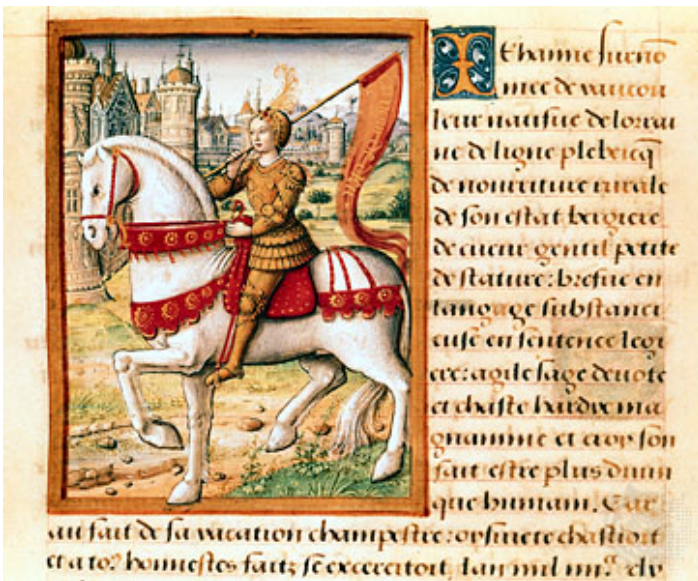 Iehanne surnō
mee de vaucou
leur natifue de lorrai
ne de ligne plebeicq̄
de nourriture rurale
de son estat bergiere
de cueur gentil petite
de stature: brefue en
langage substanci
eusē en sentence legi
ere: agile sage deuote
et chaste hardye ma
gnanime et croy son
fait estre plus diuin
que humain. Car
au fait de sa vacation champestre: oysiuete chastioit
et a to⁹ honnestes faitz se excercitoit. lan mil